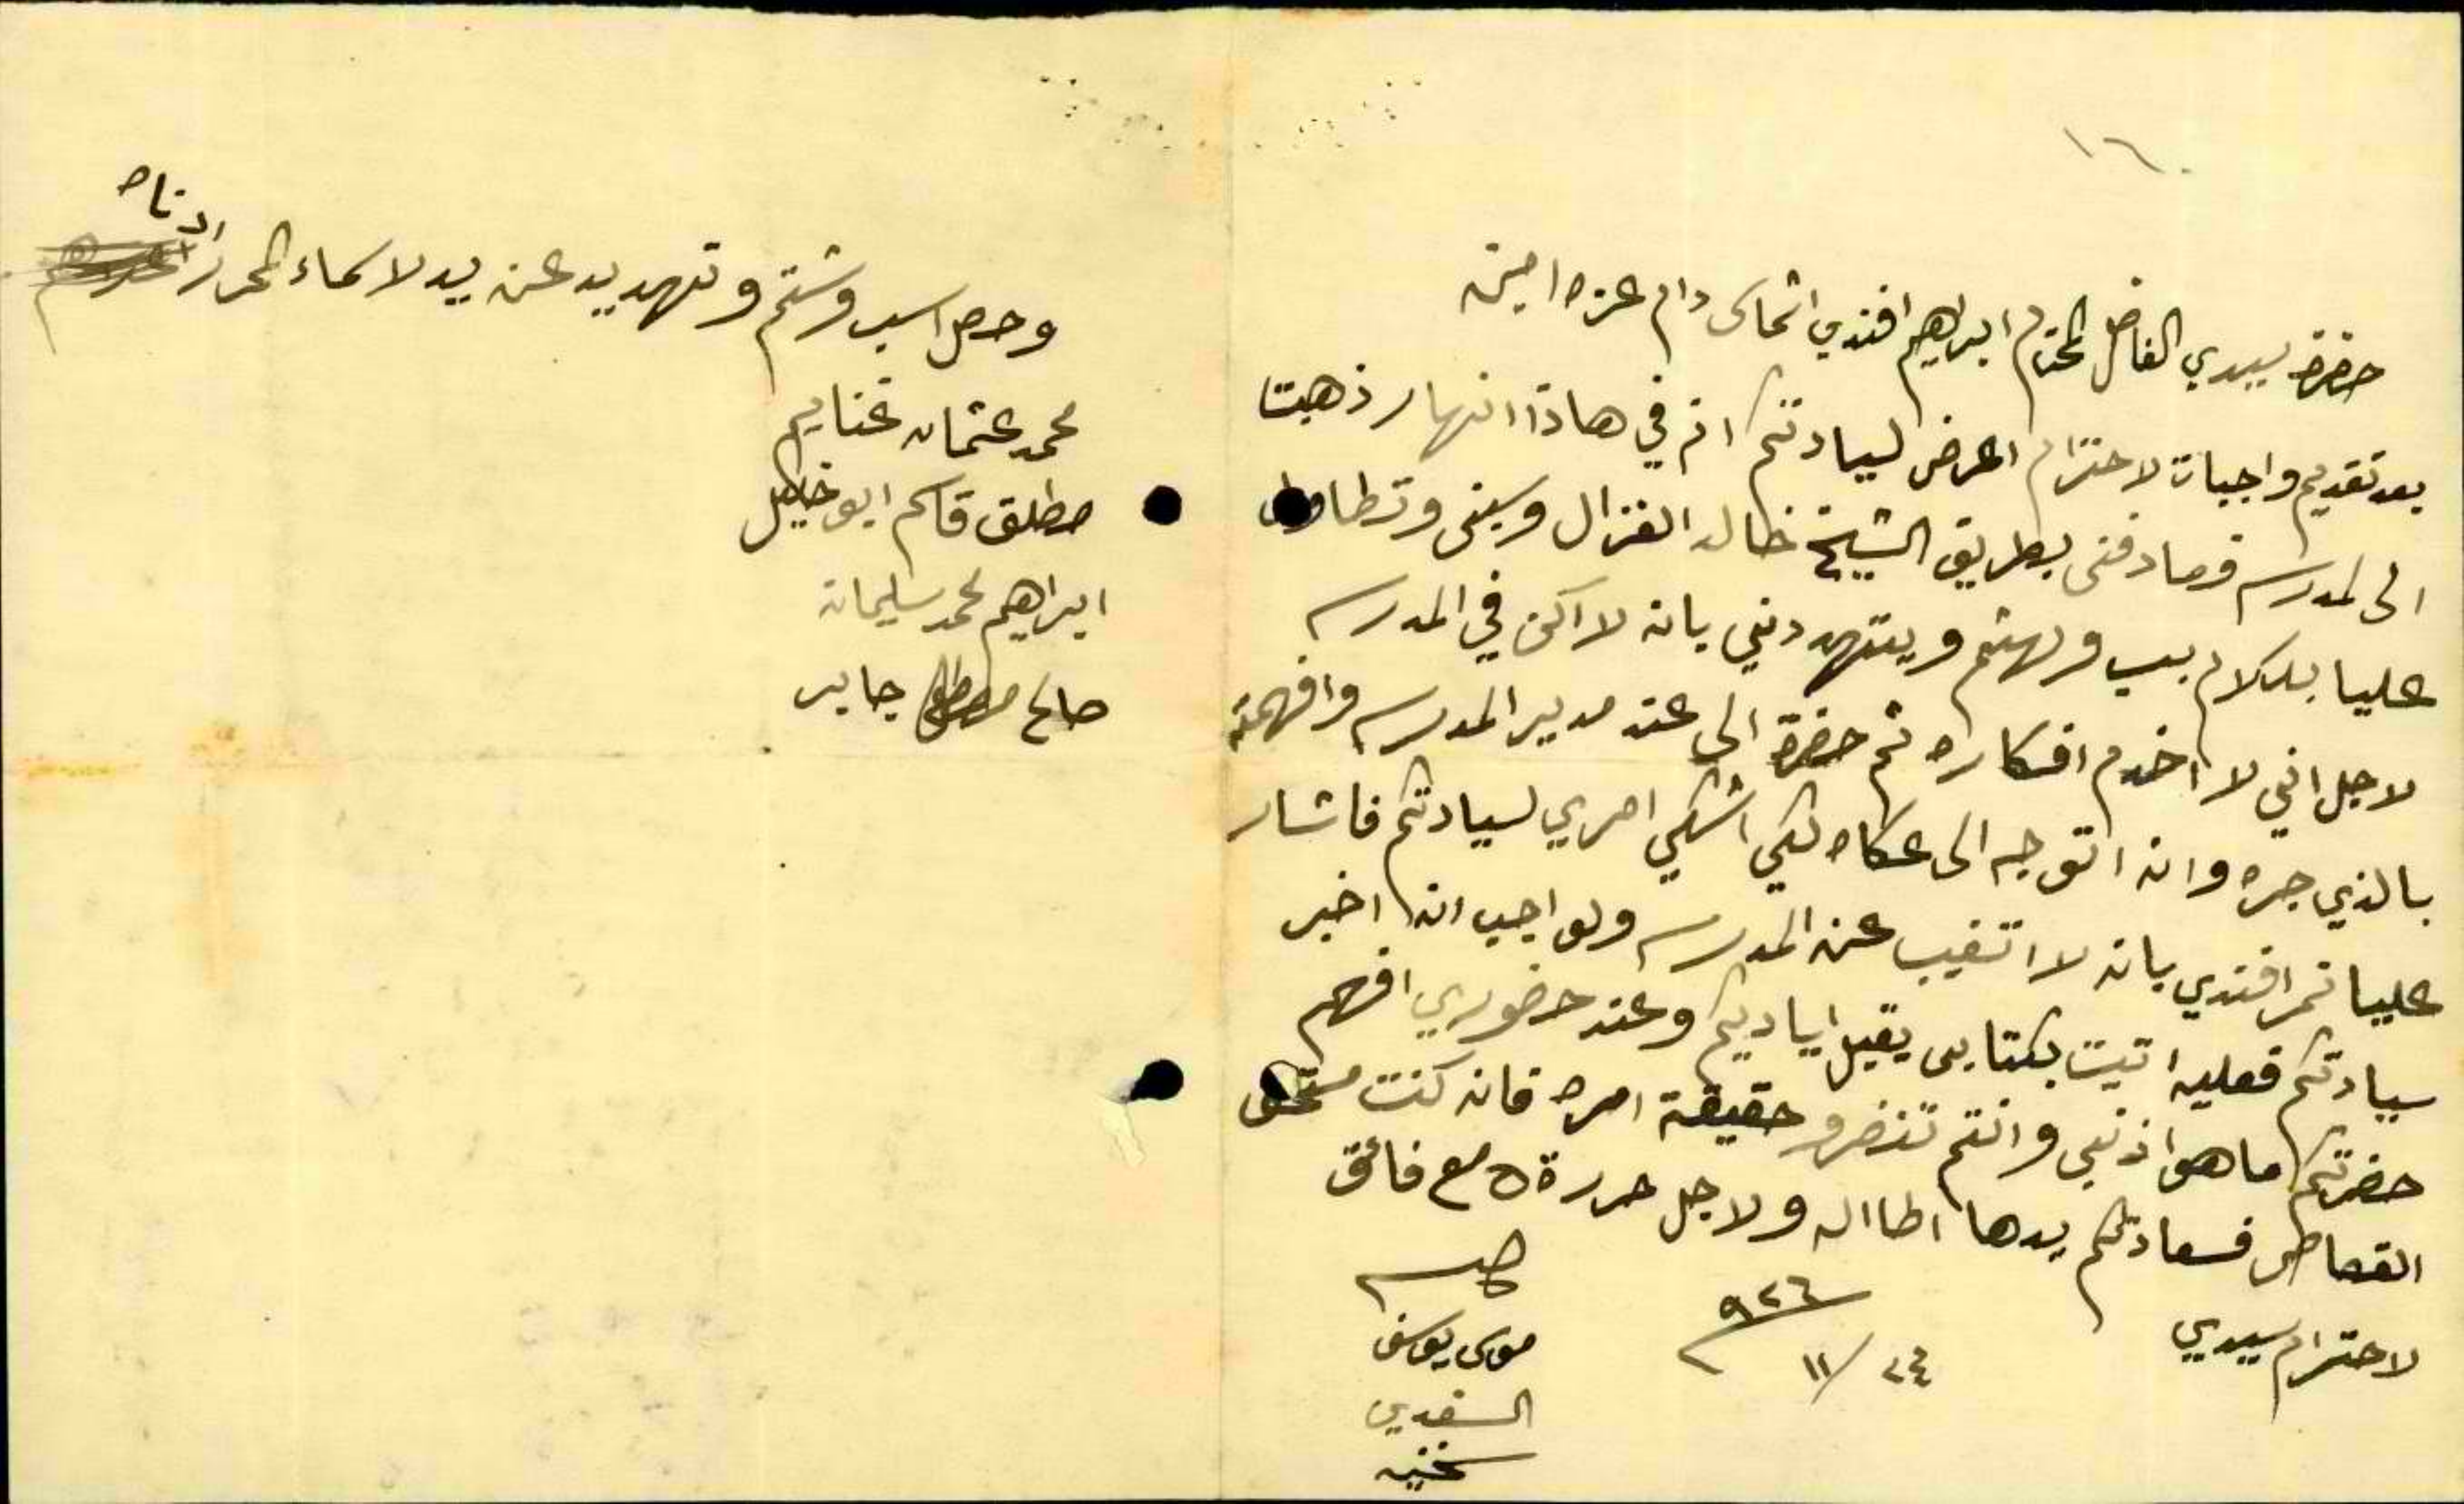 ١٦٠
حضرة سيدي الفاضل المحترم ابراهيم افندي العكي دام عزه امين
بعد تقديم واجبات لاحترام اعرض لسيادتكم انه في هاذا انهار ذهبتا
الى لمدرسه فصادفنى بطريق الشيخ خالد الغزال وسبنى وتطاول
عليا بلكلام بسب وبهتم ويتهددني بانه لا اكن في المدرسه
لاجل انني لا اخدم افكاره ثم حضرة الى عند مدير المدرسه وافهمته
بالذي جره وانه اتوجه الى عكاه لكي اشكي امري لسيادتكم فاشار
عليا نمر افندي بانه لا اتغيب عن المدرسه ولواجب انه اخبر
سيادتكم فعليه اتيت بكتابى يقبل اياديكم وعند حضوري افهم
حضرتكم ما هوا ذنبي وانتم تنضرو حقيقة امره فانه كنت مستحق
القصاص فسعادتكم يدها اطااله ولاجل حررة ه مع فائق
لاحترام سيدي
٩٢٦
٢٤ / ١١
موسى يوسف
السفدي
سخنيه
وحصل سب وشتم وتهديد عن يد لاسماء المحرر ادناه
محمد عثمان غنايم
مطلق قاسم ابو خليل
ابراهيم محمد سليمان
صالح مصطفى جابر